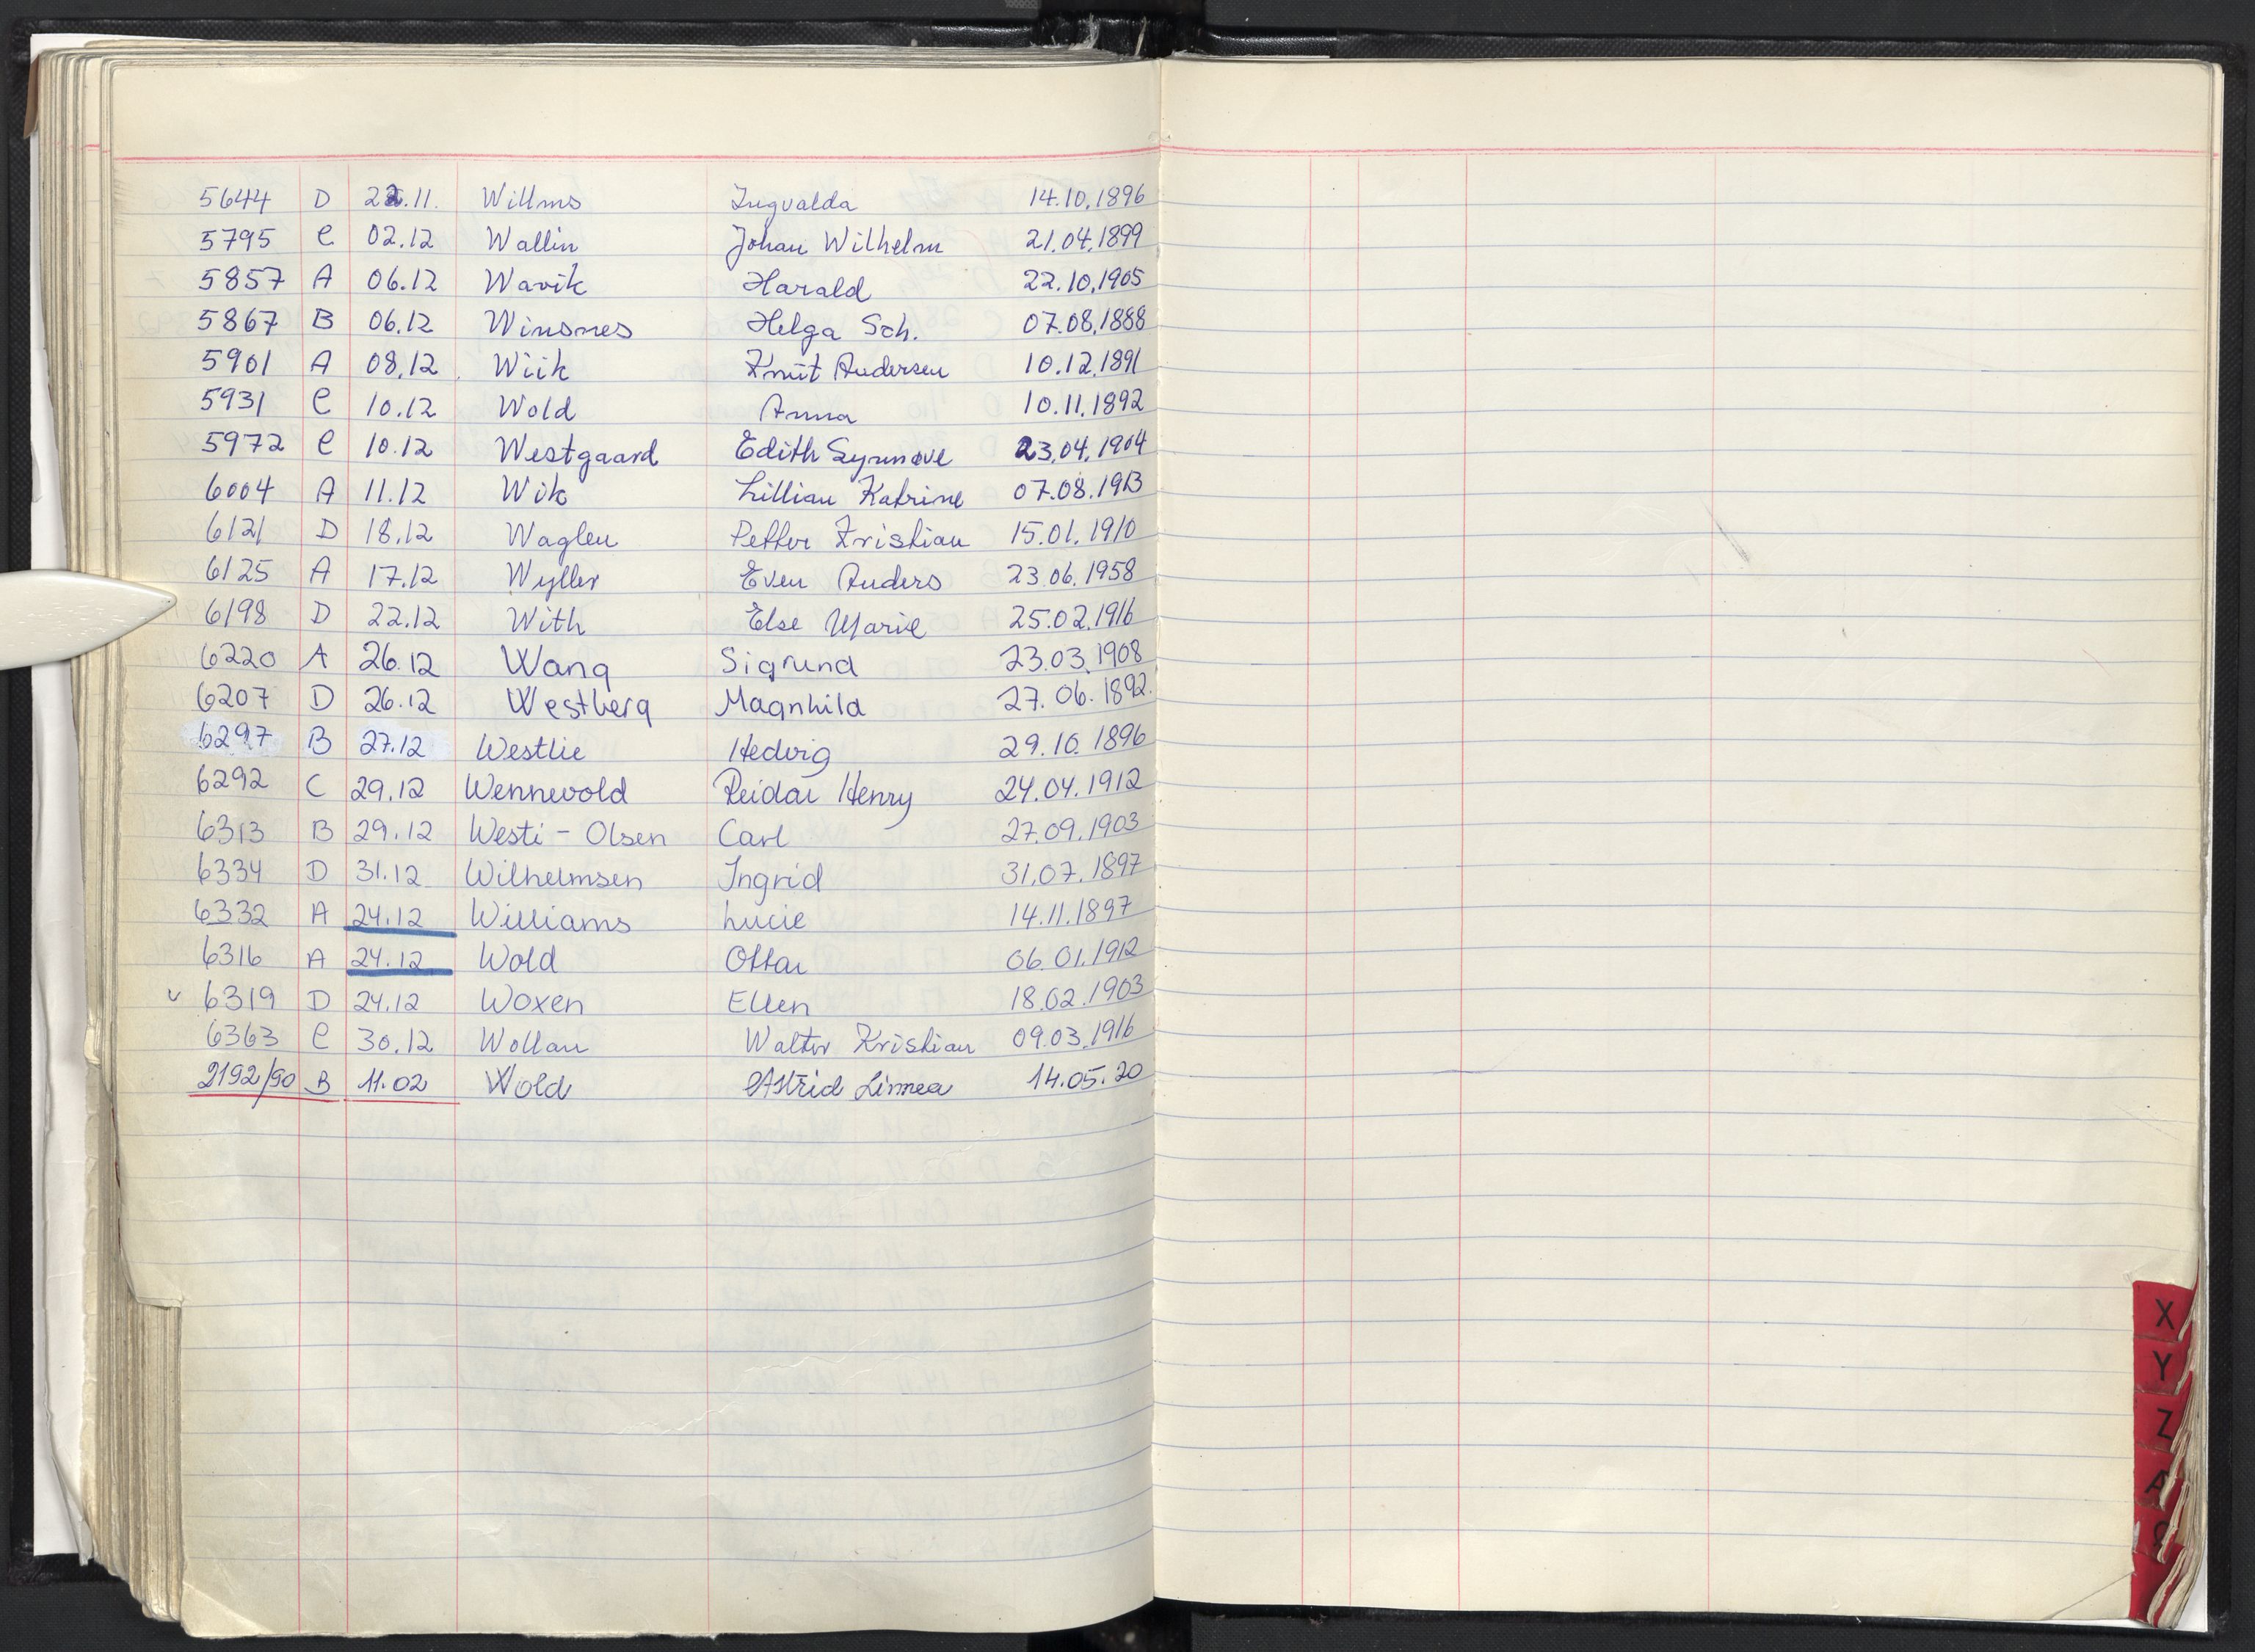 5644 D 22.11. Willms Ingvalda 14.10.1896
5795 C 02.12 Wallin Johan Wilhelm 21.04.1899
5857 A 06.12 Wavik Harald 22.10.1905
5867 B 06.12 Winsnes Helga Sch. 07.08.1888
5901 A 08.12 Wiik Knut Andersen 10.12.1891
5931 C 10.12 Wold Anna 10.11.1892
5972 C 10.12 Westgaard Edith Synnøve 23.04.1904
6004 A 11.12 Wik Lillian Katrine 07.08.1913
6121 D 18.12 Waglen Petter Kristian 15.01.1910
6125 A 17.12 Wyller Even Anders 23.06.1958
6198 D 22.12 With Else Marie 25.02.1916
6220 A 26.12 Wang Sigrund 23.03.1908
6207 D 26.12 Westberg Magnhild 27.06.1892.
6297 B 27.12 Westlie Hedvig 29.10.1896
6292 C 29.12 Wennevold Reidar Henry 24.04.1912
6313 B 29.12 Westi - Olsen Carl 27.09.1903
6334 D 31.12 Wilhelmsen Ingrid 31.07.1897
6332 A 24.12 Williams Lucie 14.11.1897
6316 A 24.12 Wold Ottar 06.01.1912
v 6319 D 24.12 Woxen Ellen 18.02.1903
6363 C 30.12 Wollan Walter Kristian 09.03.1916
2192/90 B 11.02 Wold Astrid Linnea 14.05.20
X
Y
Z